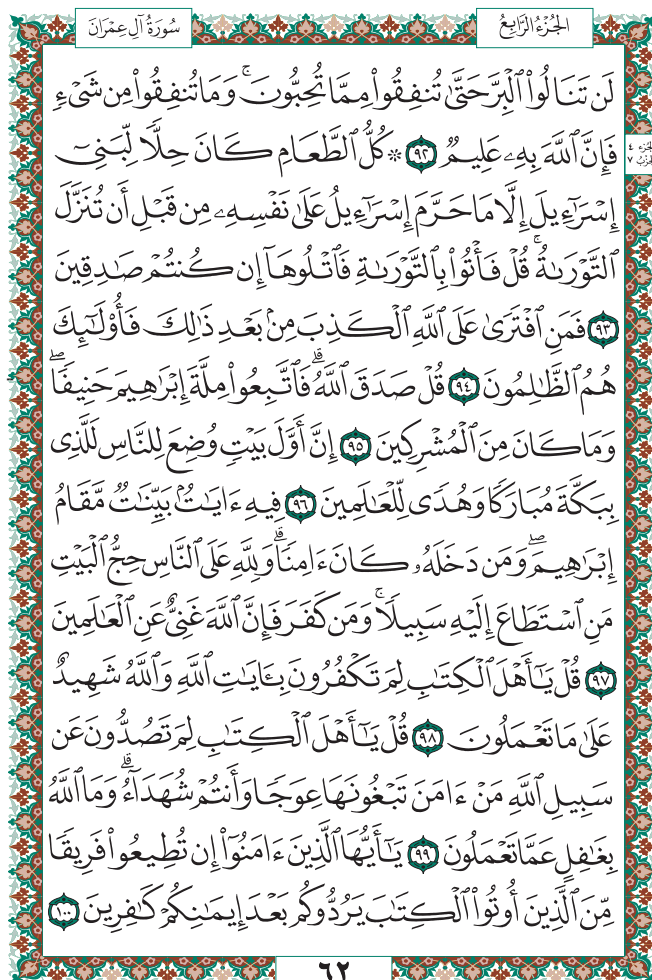 الجُزْءُ الرَّابِعُ
سُورَةُ آلِ عِمْرَانَ
لَن تَنَالُواْ ٱلۡبِرَّ حَتَّىٰ تُنفِقُواْ مِمَّا تُحِبُّونَۚ وَمَا تُنفِقُواْ مِن شَيۡءٖ
فَإِنَّ ٱللَّهَ بِهِۦ عَلِيمٞ ٩٢ ۞ كُلُّ ٱلطَّعَامِ كَانَ حِلّٗا لِّبَنِيٓ
إِسۡرَٰٓءِيلَ إِلَّا مَا حَرَّمَ إِسۡرَٰٓءِيلُ عَلَىٰ نَفۡسِهِۦ مِن قَبۡلِ أَن تُنَزَّلَ
ٱلتَّوۡرَىٰةُۚ قُلۡ فَأۡتُواْ بِٱلتَّوۡرَىٰةِ فَٱتۡلُوهَآ إِن كُنتُمۡ صَٰدِقِينَ
٩٣ فَمَنِ ٱفۡتَرَىٰ عَلَى ٱللَّهِ ٱلۡكَذِبَ مِنۢ بَعۡدِ ذَٰلِكَ فَأُوْلَٰٓئِكَ
هُمُ ٱلظَّٰلِمُونَ ٩٤ قُلۡ صَدَقَ ٱللَّهُۗ فَٱتَّبِعُواْ مِلَّةَ إِبۡرَٰهِيمَ حَنِيفٗاۖ
وَمَا كَانَ مِنَ ٱلۡمُشۡرِكِينَ ٩٥ إِنَّ أَوَّلَ بَيۡتٖ وُضِعَ لِلنَّاسِ لَلَّذِي
بِبَكَّةَ مُبَارَكٗا وَهُدٗى لِّلۡعَٰلَمِينَ ٩٦ فِيهِ ءَايَٰتُۢ بَيِّنَٰتٞ مَّقَامُ
إِبۡرَٰهِيمَۖ وَمَن دَخَلَهُۥ كَانَ ءَامِنٗاۗ وَلِلَّهِ عَلَى ٱلنَّاسِ حِجُّ ٱلۡبَيۡتِ
مَنِ ٱسۡتَطَاعَ إِلَيۡهِ سَبِيلٗاۚ وَمَن كَفَرَ فَإِنَّ ٱللَّهَ غَنِيٌّ عَنِ ٱلۡعَٰلَمِينَ
٩٧ قُلۡ يَٰٓأَهۡلَ ٱلۡكِتَٰبِ لِمَ تَكۡفُرُونَ بِـَٔايَٰتِ ٱللَّهِ وَٱللَّهُ شَهِيدٌ
عَلَىٰ مَا تَعۡمَلُونَ ٩٨ قُلۡ يَٰٓأَهۡلَ ٱلۡكِتَٰبِ لِمَ تَصُدُّونَ عَن
سَبِيلِ ٱللَّهِ مَنۡ ءَامَنَ تَبۡغُونَهَا عِوَجٗا وَأَنتُمۡ شُهَدَآءُۗ وَمَا ٱللَّهُ
بِغَٰفِلٍ عَمَّا تَعۡمَلُونَ ٩٩ يَٰٓأَيُّهَا ٱلَّذِينَ ءَامَنُوٓاْ إِن تُطِيعُواْ فَرِيقٗا
مِّنَ ٱلَّذِينَ أُوتُواْ ٱلۡكِتَٰبَ يَرُدُّوكُم بَعۡدَ إِيمَٰنِكُمۡ كَٰفِرِينَ ١٠٠
الجزء ٤
الحزب ٧
٦٢